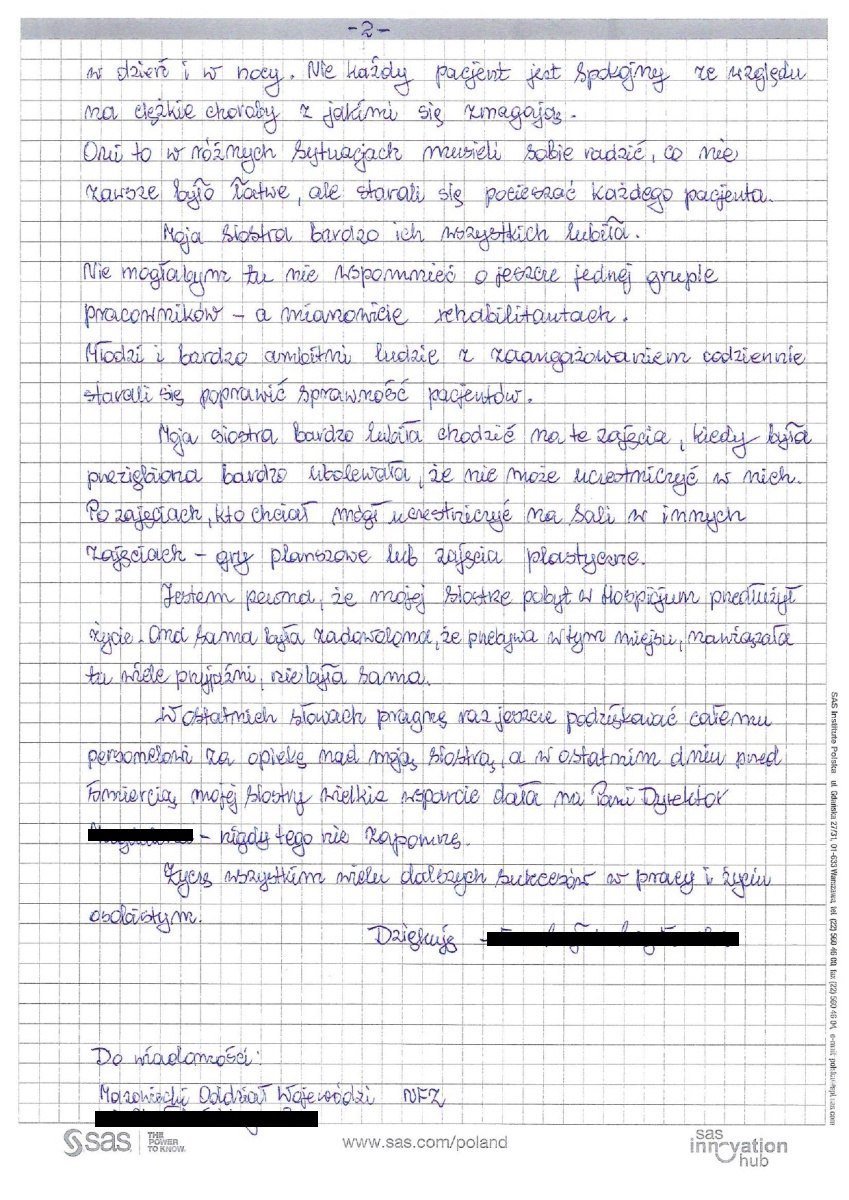 -2-
w dzień i w nocy. Nie każdy pacjent jest spokojny ze względu
na ciężkie choroby z jakimi się zmagają.
Oni to w różnych sytuacjach musieli sobie radzić, co nie
zawsze było łatwe, ale starali się pocieszać każdego pacjenta.
Moja siostra bardzo ich wszystkich lubiła.
Nie mogłabym tu nie wspomnieć o jeszcze jednej grupie
pracowników – a mianowicie rehabilitantach.
Młodzi i bardzo ambitni ludzie z zaangażowaniem codziennie
starali się poprawić sprawność pacjentów.
Moja siostra bardzo lubiła chodzić na te zajęcia, kiedy była
przeziębiona bardzo ubolewała, że nie może uczestniczyć w nich.
Po zajęciach, kto chciał mógł uczestniczyć na sali w innych
zajęciach – gry planszowe lub zajęcia plastyczne.
Jestem pewna, że mojej siostrze pobyt w Hospicjum przedłużył
życie. Ona sama była zadowolona, że przebywa w tym miejscu, nawiązała
tu wiele przyjaźni, nie była sama.
W ostatnich słowach pragnę raz jeszcze podziękować całemu
personelowi za opiekę nad moją siostrą, a w ostatnim dniu przed
śmiercią mojej siostry wielkie wsparcie dała na Pani Dyrektor
– nigdy tego nie zapomnę.
Życzę wszystkim wielu dalszych sukcesów w pracy i życiu
osobistym.
Dziękuję –
Do wiadomości:
Mazowiecki Oddział Wojewódzki NFZ
SAS Institute Polska ul. Gdańska 27/31, 01-633 Warszawa, tel. (22) 560 46 00, fax (22) 560 46 04, e-mail:
sas THE POWER TO KNOW.
www.sas.com/poland
sas innovation hub